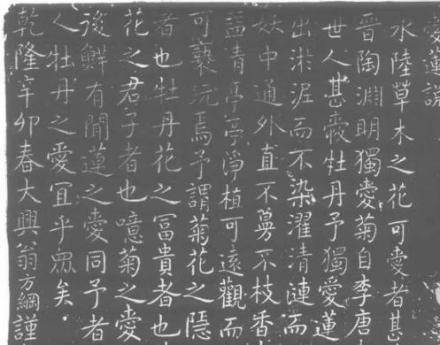 愛蓮說
水陸草木之花可愛者甚
晉陶淵明獨愛菊自李唐
世人甚愛牡丹予獨愛蓮
出淤泥而不染濯清漣而
妖中通外直不蔓不枝香
益青亭亭淨植可遠觀而
可褻玩焉予謂菊花之隱
者也牡丹花之冨貴者也
花之君子者也噫菊之愛
後鮮有聞蓮之愛同予者
人牡丹之愛宜乎眾矣
乾隆辛卯春大興翁方綱謹